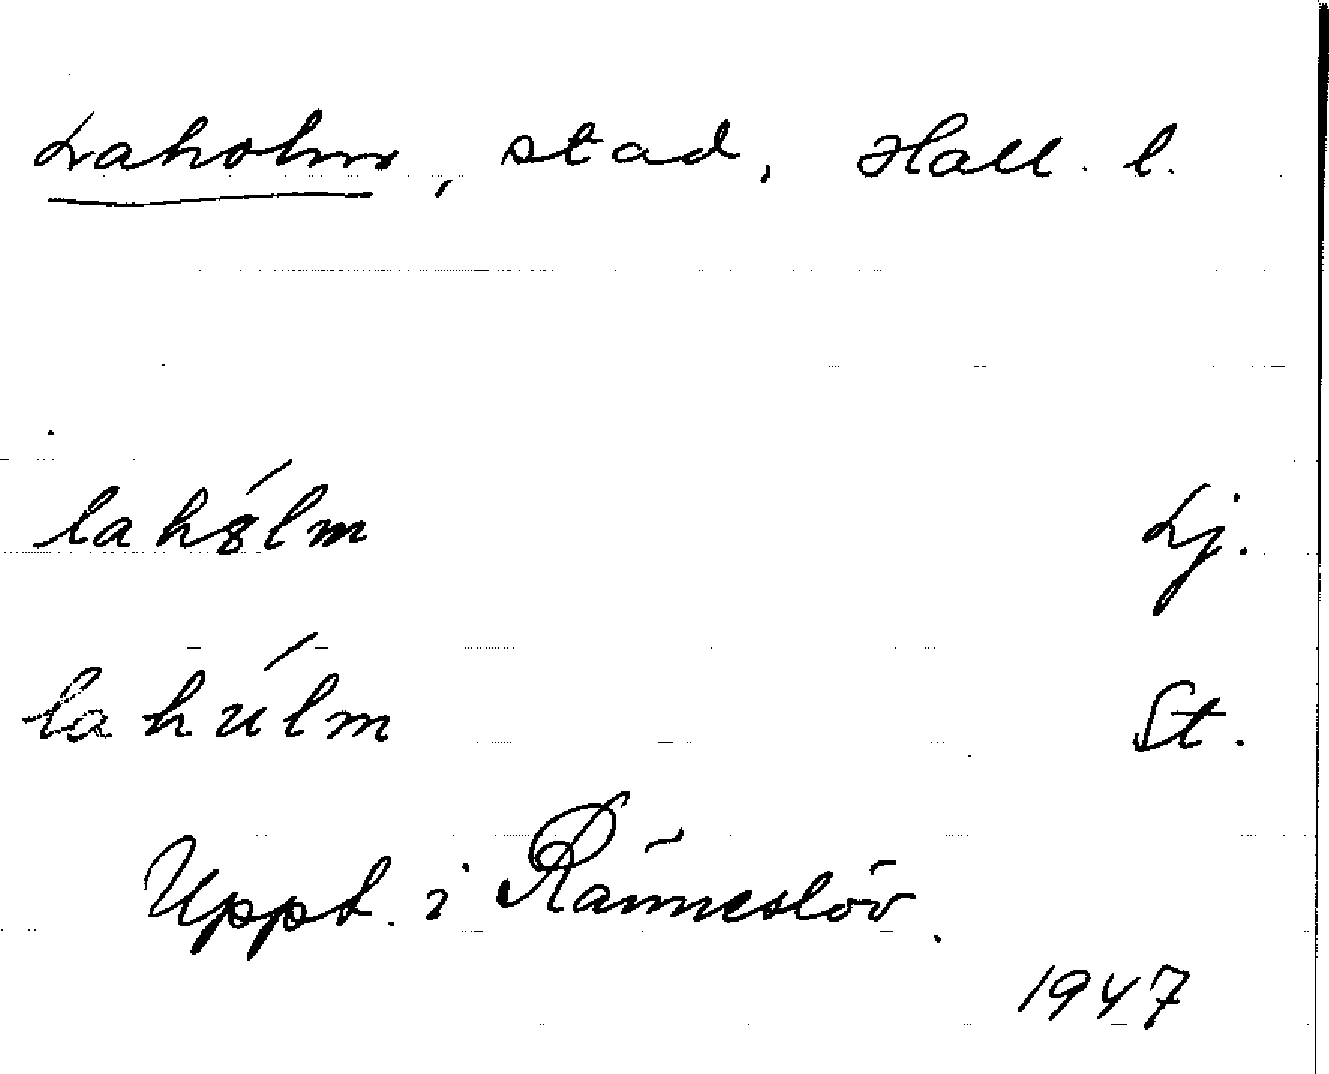 Laholm, stad, Hall. l.
lahȣ́lm Lj.
lahúlm St.
Uppt. i Ränneslöv.
1947